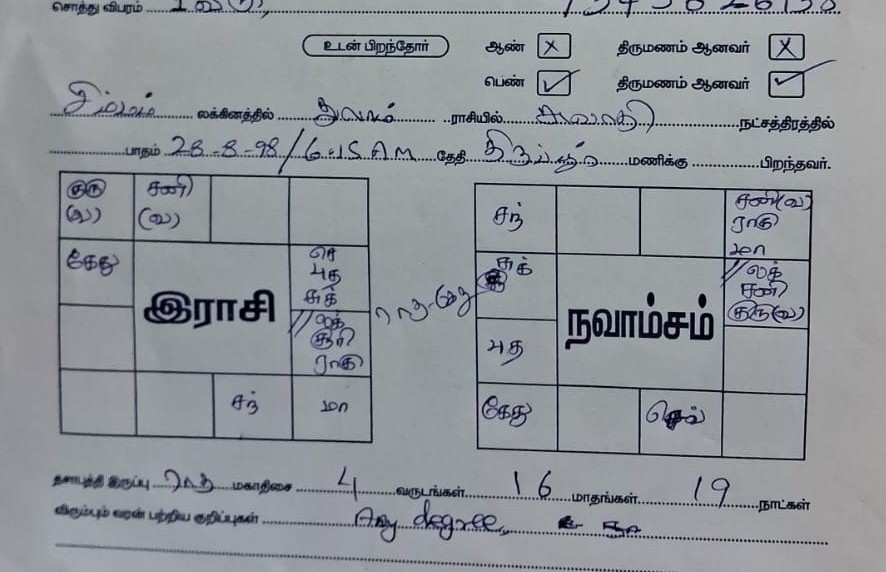 சொத்து விபரம்
உடன் பிறந்தோர் ஆண் X திருமணம் ஆனவர் X
பெண் ✓ திருமணம் ஆனவர் ✓
சிம்மம் லக்கினத்தில் துலாம் ராசியில் சுவாதி நட்சத்திரத்தில்
பாதம் 28-8-98/6-15 AM தேதி திருப்பூர் மணிக்கு பிறந்தவர்.
குரு (வ) சனி (வ)
கேது
செ புத சுக்
இராசி
லக் சூரி ராகு
சந் மா
ராகு-கேது
சந் சனி(வ) ராகு மா
சுக்
லக் சனி குரு(வ)
நவாம்சம்
புத
கேது செவ்
தசாபுத்தி இருப்பு ராகு மகாதிசை 4 வருடங்கள் 16 மாதங்கள் 19 நாட்கள்
விரும்பும் வரன் பற்றிய குறிப்புகள் Any degree,